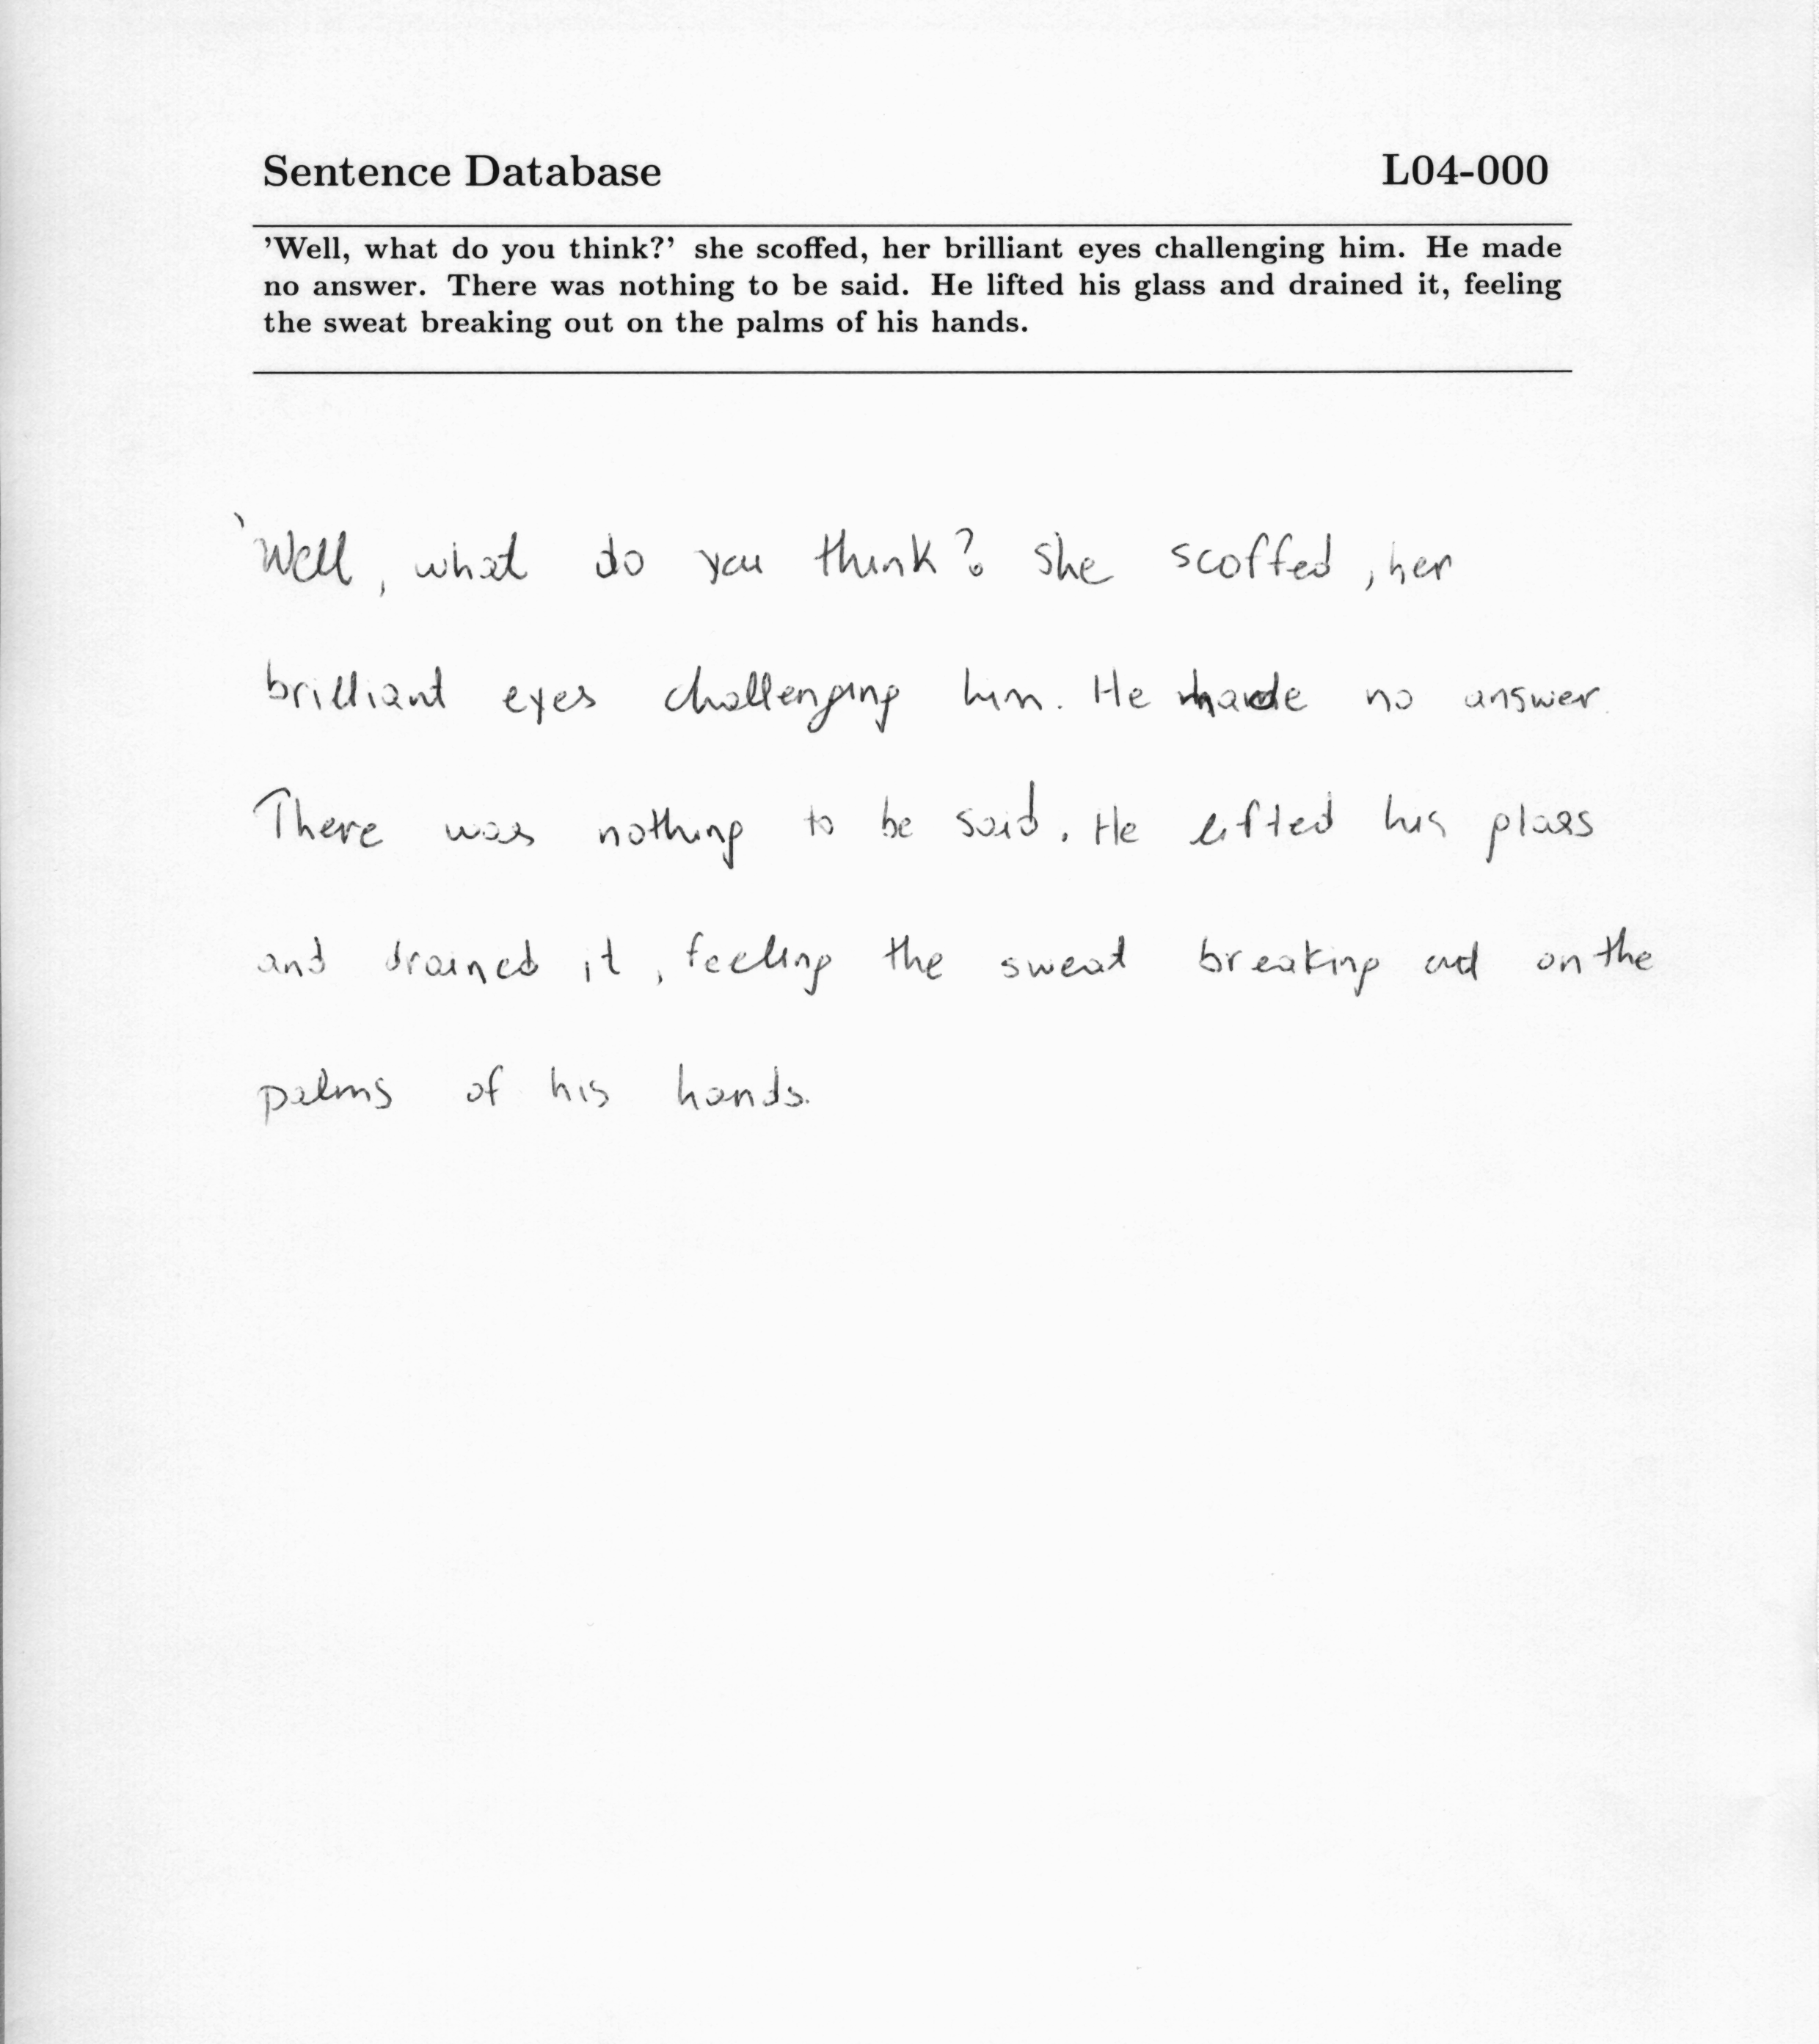 Sentence Database L04-000
’Well, what do you think?’ she scoffed, her brilliant eyes challenging him. He made
no answer. There was nothing to be said. He lifted his glass and drained it, feeling
the sweat breaking out on the palms of his hands.
'Well, what do you think? she scoffed, her
brilliant eyes challenging him. He made no answer.
There was nothing to be said. He lifted his glass
and drained it, feeling the sweat breaking out on the
palms of his hands.